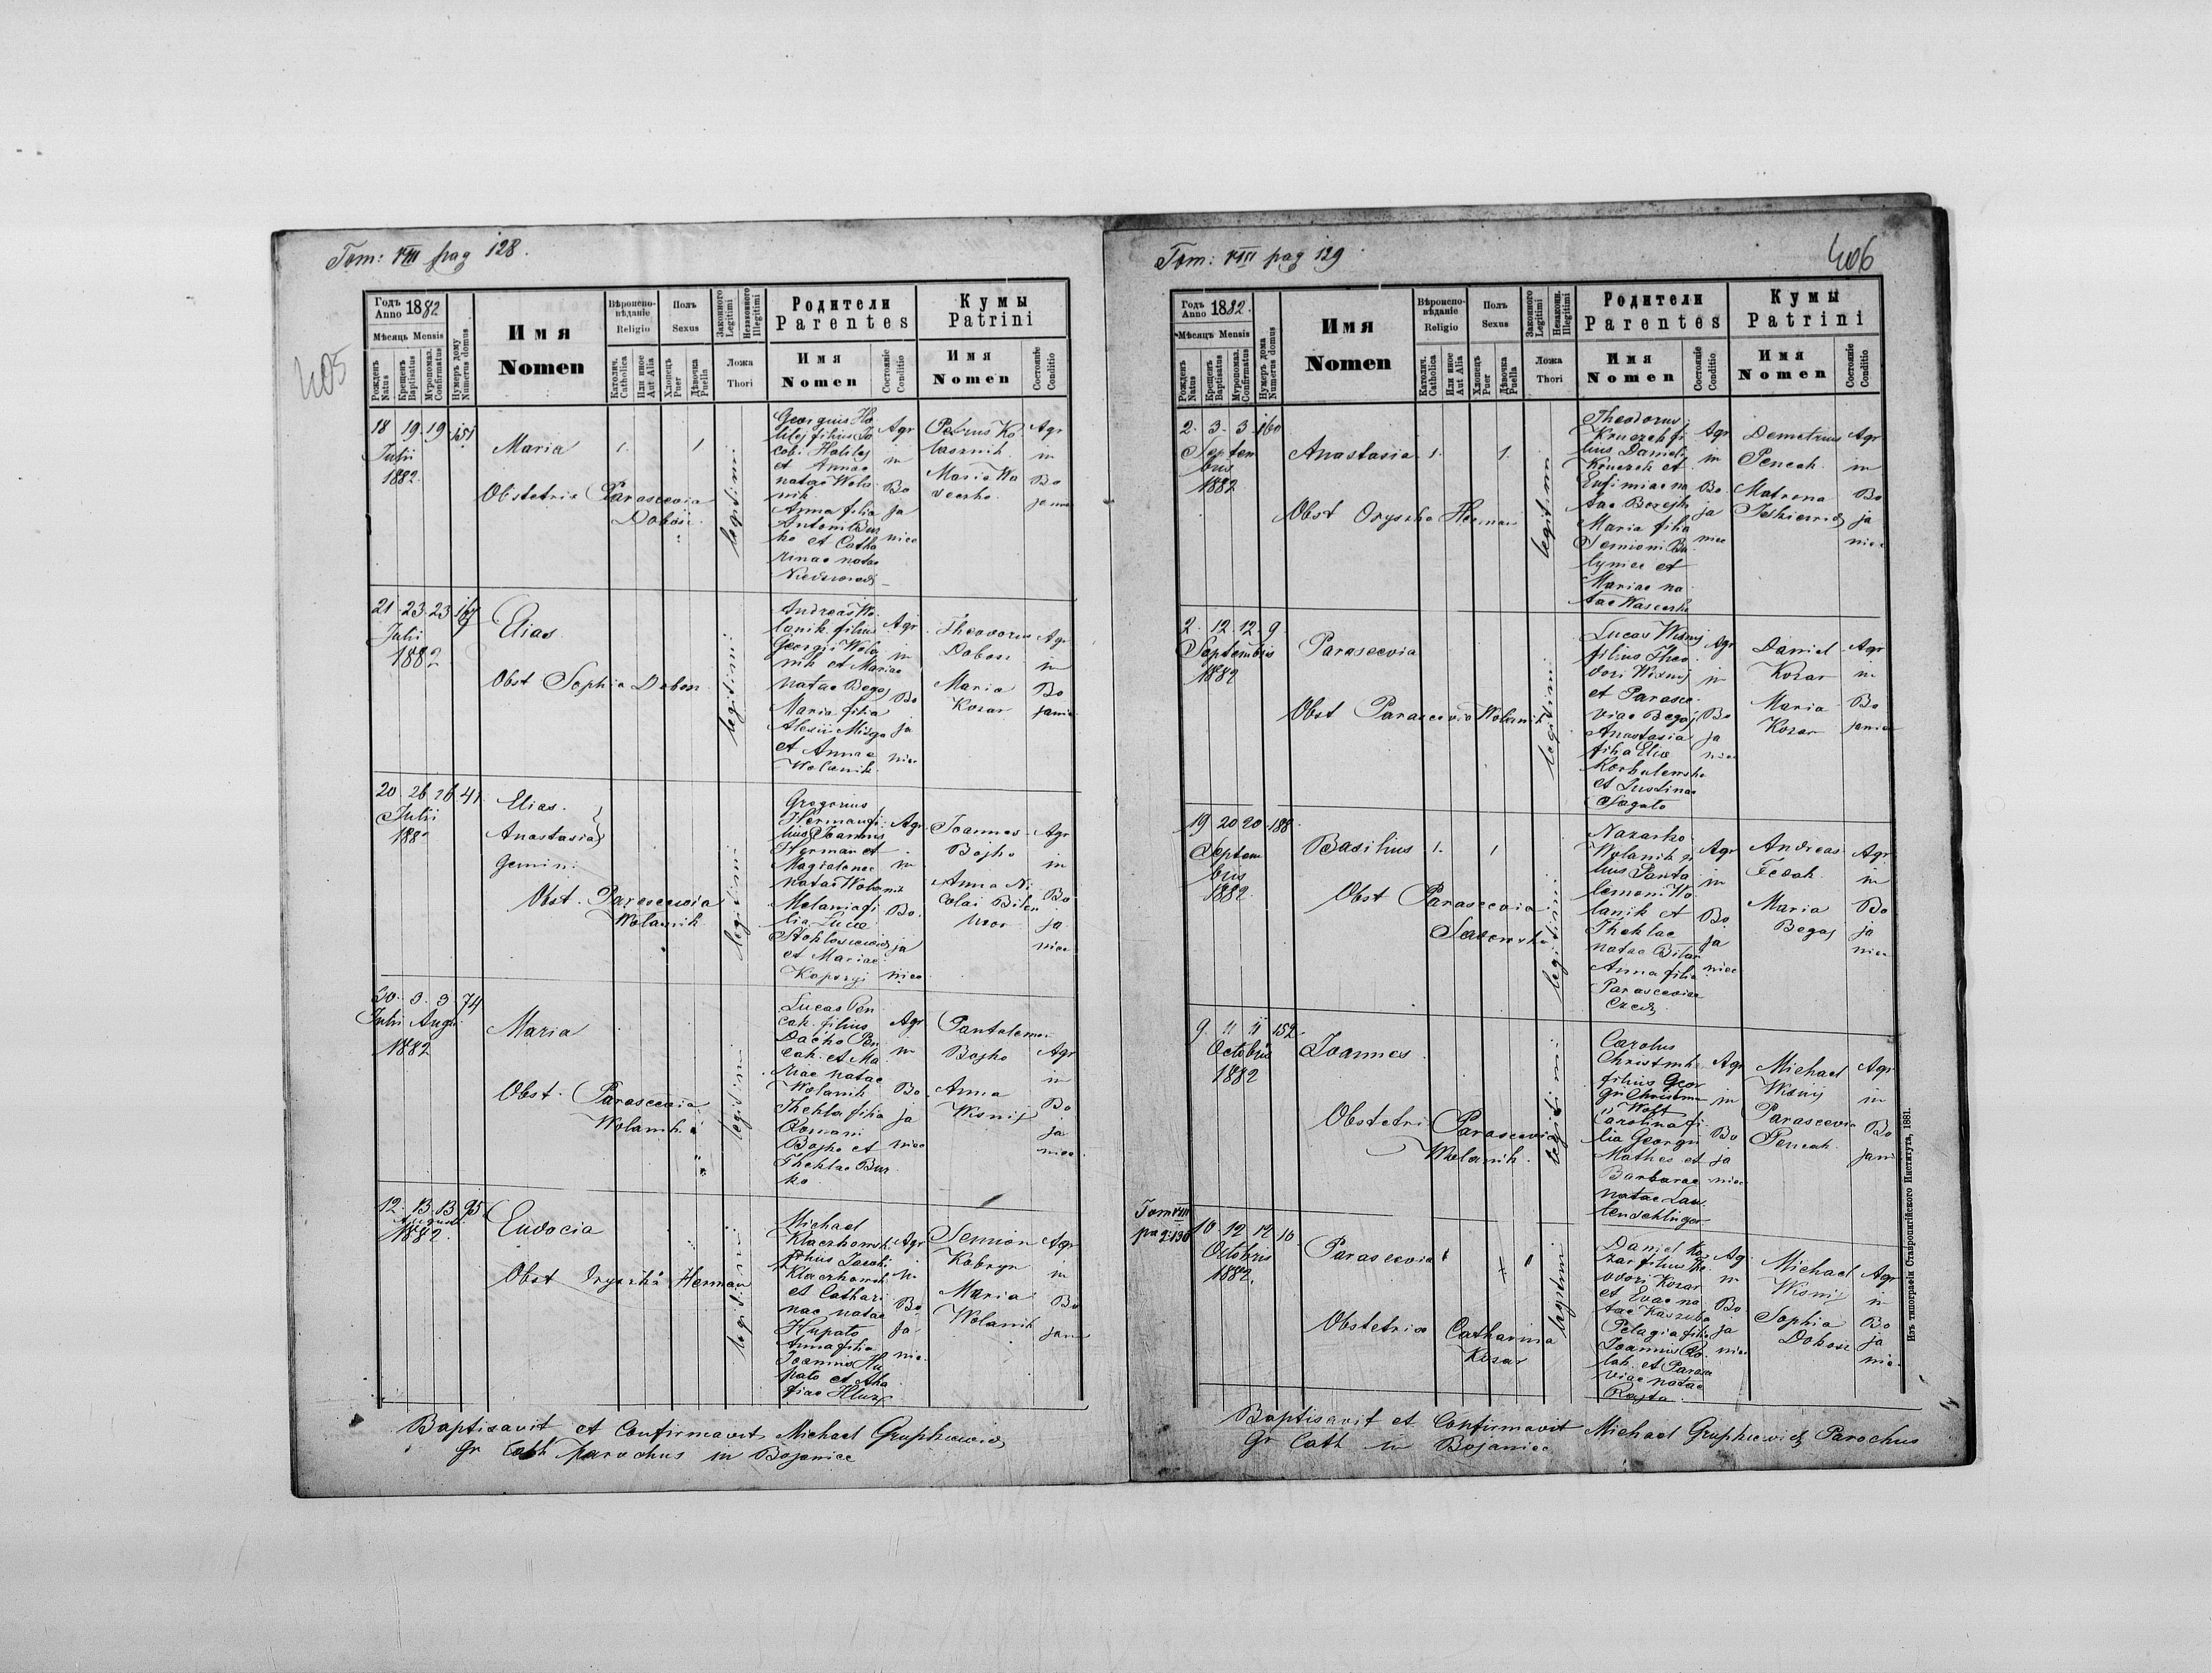 Tom: VIII pag 128.
405
Годъ Anno 1882
Мѣсяцъ Mensis
Рожденъ Natus
Крещенъ Baptisatus
Муропомаз. Confirmatus
Нумеръ дому Numerus domus
Имя
Nomen
Вѣроиспо-
вѣданіе
Religio
Католич. Catholica
Или иное Aut Alia
Полъ
Sexus
Хлопецъ Puer
Дѣвочка Puella
Законного Legitimi
Незаконного Illegitimi
Ложа
Thori
Родители
Parentes
Имя
Nomen
Состояніе Conditio
Кумы
Patrini
Имя
Nomen
Состояніе Conditio
18 19 19 151
Julii
1882.
Maria 1. 1
Obstetrix Parascevia
Dobosz
legitimi
Georgius Ha
lilej filius Ja
cobi Halilej
et Annae
natae Wola
nik
Anna filia
Antoni Bur
ko et Catha
rinae natae
Agr
in
Bo
ja
niec
Petrus Ko
Maria Wa
Agr
in
Bo
21 23 23 167
Julii
1882
Elias
Obst Sophia Dobosz
legitimi
Andreas Wo
lanik filius
Georgii Wola
nik et Mariae
natae Begaj
Maria filia
Alexii Mizga
et Annae
Wolanik.
Agr
in
Bo
ja
niec
Theodorus
Dobosz
Maria
Kozar
Agr
in
Bo
janiec
20 26 26 41
Julii
188
Elias.
Anastasia
gemini
Obst. Parascevia
Wolanik
legitimi
Gregorius
Herman fi
lius Joannis
Herman et
Magdalenae
natae Wolanik
Melania fi
lia Lucae
et Mariae
Agr
in
Bo
ja
niec
Joannes
Bojko
Anna Ni
colai Bilan
uxor
Agr
in
Bo
ja
niec
30 3 3 74
Julii Augu
1882
Maria
Obst. Parascevia
Wolanik
legitimi
Lucas Pen
cak filius
Dacko Pen
cak et Ma
riae natae
Wolanik
Thekla filia
Romani
Bojko et
Theklae Bur
ko
Agr
in
Bo
ja
niec
Pantalemon
Bojko
Anna
Wisnij
Agr
in
Bo
ja
niec
12 13 13 95
Augusti
1882.
Eudocia
Obst Oryszka Herman
legitimi
Michael
Klaczkowski
filius Jacobi
Klaczkowski
et Cathari
nae natae
Hupało
Anna filia
Joannis Hu
pało et Aha
fiae Hluzk
Agr
in
Bo
ja
nie
Semion
Kobryn
Maria
Wolanik
Agr
in
Bo
jan
Baptisavit et Confirmavit Michael Gruszkiewicz
gr Cath parochus in Bojaniec
Tom: VIII pag 129
406
Годъ Anno 1882.
Мѣсяцъ Mensis
Рожденъ Natus
Крещенъ Baptisatus
Муропомаз. Confirmatus
Нумеръ дома Numerus domus
Имя
Nomen
Вѣроиспо-
вѣданіе
Religio
Католич. Catholica
Или иное Aut Alia
Полъ
Sexus
Хлопецъ Puer
Дѣвочка Puella
Законного Legitimi
Незаконн. Illegitimi
Ложа
Thori
Родители
Parentes
Имя
Nomen
Состояніе Conditio
Кумы
Patrini
Имя
Nomen
Состояніе Conditio
2. 3. 3. 160
Septem
bris
1882
Anastasia 1. 1.
Obst Oryszka Herman
legitimi
Theodorus
Kruczek fi
lius Danieli
Kruczek et
Eufimiae na
tae
Maria filia
Semioni Ba
et
Mariae na
tae
Agr
in
Bo
ja
niec
Demetrius
Pencak
Matrona
Agr
in
Bo
ja
niec
2. 12. 12. 9
Septembris
1882
Parascevia
Obst Parascevia Wolanik
legitimi
Lucas Wisnij
filius Theo
dori Wisnij
et Parasce
viae Begaj
Anastasia
filia Eliae
et Justinae
Sagato
Agr
in
Bo
ja
niec
Daniel
Kozar
Maria
Kozar
Agr
in
Bo
janiec
19 20 20 188
Septem
bris
1882
Basilius 1. 1
Obst Parascevia
legitimi
Nazarko
Wolanik fi
lius Panta
lemoni Wo
lanik et
Theklae
natae Bilan
Anna filia
Parasceviae
Agr
in
Bo
ja
niec
Andreas
Fedak
Maria
Begaj
Agr
in
Bo
ja
niec
9 11 11 152
Octobris
1882
Joannes
Obstetrix Parascevia
Wolanik.
legitimi
Carolus
Christmh
filius Geor
gii Christm
Wolf
Carolina fi
lia Georgii
Mathes et
Barbarae
natae Lau
tenschlüger
Agr
in
Bo
ja
niec
Michael
Wisnij
Parascevia
Pencak
Agr
in
Bo
jani
Tom VIII
pag 130
10 12 12 10.
Octobris
1882.
Parascevia
Obstetrix Catharina
Kozar
legitimi
Daniel Ko
zar filius The
odori Kozar
et Evae na
tae Kaszuba
Pelagia filia
Joannis
et Parasce
viae natae
Rajta
Ag
in
Bo
ja
niec
Michael
Wisnij
Sophia
Dobosz
Agr
in
Bo
ja
nie
Изъ типографіи Ставропигійского Института, 1881.
Baptisavit et Confirmavit Michael Gruszkiewicz Parochus
gr Cath in Bojaniec